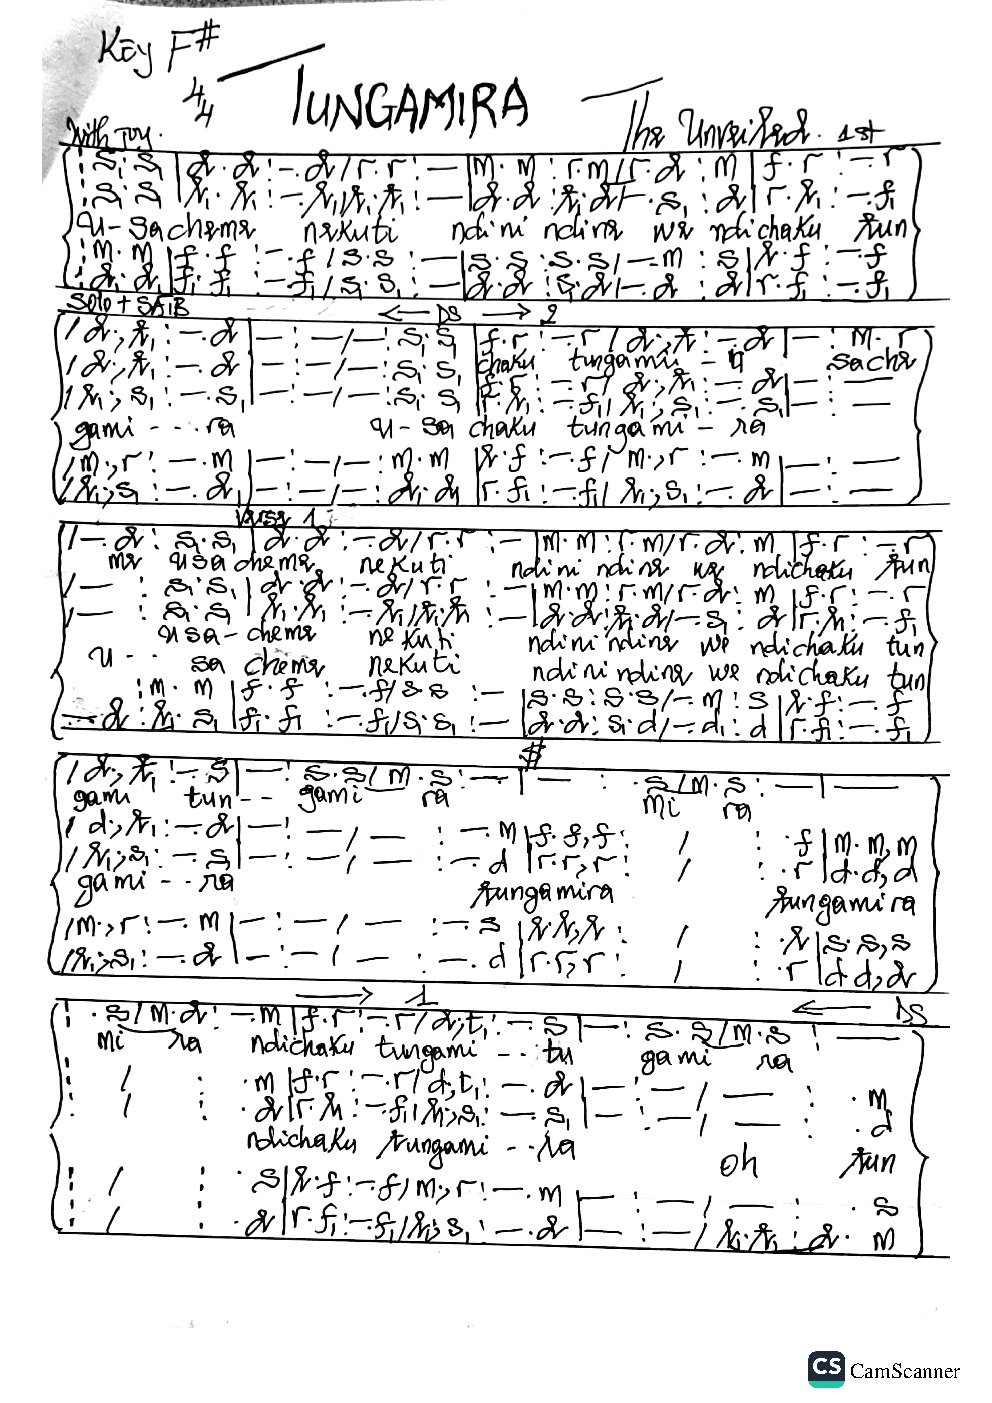 Key F#
4/4
TUNGAMIRA
The Unveiled. 1st
With Joy.
: s₁. s₁ | d . d : - . d / r . r : - | m . m : r . m / r . d : m | f . r : - . r
: s₁. s₁ | l₁ . l₁ : - . l₁ / t₁ . t₁ : - | d . d : t₁ . d / - . s₁ : d | r . l₁ : - . f₁
U-Sacheme nekuti ndini ndine we ndichaku tun
: m . m | f . f : - . f / s . s : - | s . s : s . s / - . m : s | l . f : - . f
: d . d | f₁ . f₁ : - . f₁ / s₁ . s₁ : - | d . d : s₁ . d / - . d : d | r . f₁ : - . f₁
Solo + SATB
← DS → 2
/ d ., t₁ : - . d | - : - / - : s₁ . s₁ | f . r : - . r / d ., t₁ : - . d | - : m . r
chaku tungamii - ra sache
/ d ., t₁ : - . d | - : - / - : s₁ . s₁ | f . r : - . r / d ., t₁ : - . d | - : -
/ l₁ ., s₁ : - . s₁ | - : - / - : s₁ . s₁ | r . l₁ : - . f₁ / l₁ ., s₁ : - . s₁ | - : -
gami - - . ra u-sa chaku tungami - ra
/ m ., r : - . m | - : - / - : m . m | l . f : - . f / m ., r : - . m | - : -
/ l₁ ., s₁ : - . d | - : - / - : d . d | r . f₁ : - . f₁ / l₁ ., s₁ : - . d | - : -
Verse 1
/ - . d : s₁ . s₁ | d . d : - . d / r . r : - | m . m : r . m / r . d : m | f . r : - . r
me usacheme nekuti ndini ndine we ndichaku tun
/ - : s₁ . s₁ | d . d : - . d / r . r : - | m . m : r . m / r . d : m | f . r : - . r
/ - : s₁ . s₁ | l₁ . l₁ : - . l₁ / t₁ . t₁ : - | d . d : t₁ . d / - . s₁ : d | r . l₁ : - . f₁
usa-cheme nekuti ndini ndine we ndichaku tun
U - - sa cheme nekuti ndini ndine we ndichaku tun
: m . m | f . f : - . f / s . s : - | s . s : s . s / - . m : s | l . f : - . f
- . d : l₁ . s₁ | f₁ . f₁ : - . f₁ / s₁ . s₁ : - | d . d : s₁ . d / - . d : d | r . f₁ : - . f₁
#
/ d ., t₁ : - . s | - : s . s / m . s : - | - : s / m . s : - | -
gami tun - - gami ra mi ra
/ d ., t₁ : - . d | - : - / - : - . m | f . f, f : / : . f | m . m, m
/ l₁ ., s₁ : - . s₁ | - : - / - : - . d | r . r, r : / : . r | d . d, d
gami - - ra tungamira tungamira
/ m ., r : - . m | - : - / - : - . s | l . l, l : / : . l | s . s, s
/ l₁ ., s₁ : - . d | - : - / - : - . d | r . r, r : / : . r | d d, d
→ 1
← DS
: . s / m . d : - . m | f . r : - . r / d ., t₁ : - . s | - : s . s / m . s : -
mi ra ndichaku tungami - - tu gami ra
: / : . m | f . r : - . r / d ., t₁ : - . d | - : - / - : . m
: / : . d | r . l₁ : - . f₁ / l₁ ., s₁ : - . s₁ | - : - / - : . d
ndichaku tungami - - ra oh tun
: / : . s | l . f : - . f / m ., r : - . m | - : - / - : . s
: / : . d | r . f₁ : - . f₁ / l₁ ., s₁ : - . d | - : - / l₁ . t₁ : d . m
CS CamScanner